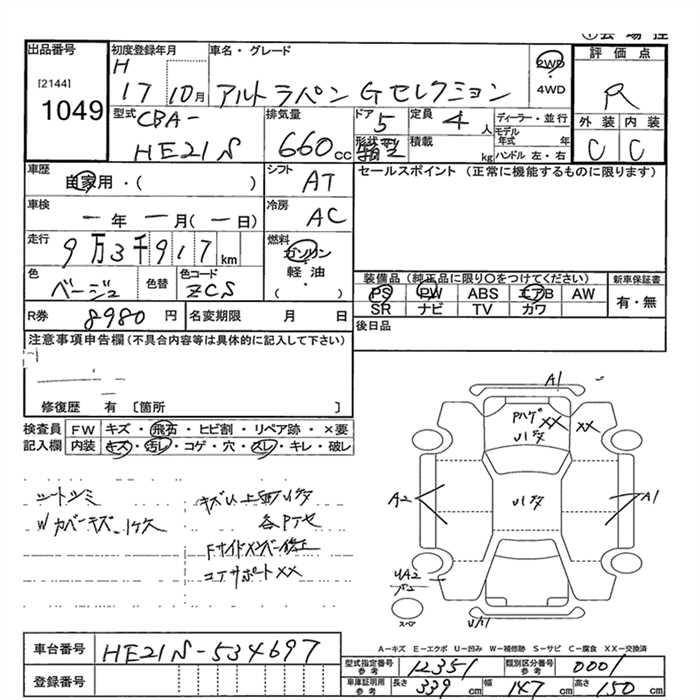 出品番号
[2144]
1049
初度登録年月
H
17 10月
車名・グレード
アルトラパン Gセレクション
2WD
4WD
評価点
R
外装 内装
C C
型式
CBA-
HE21S
排気量
660cc
ドア
5
形状
箱型
定員
4人
積載
kg
ディーラー・並行
モデル年式 年
ハンドル 左・右
車歴
自家用・( )
シフト
AT
セールスポイント (正常に機能するものに限ります)
車検
ー年ー月(ー日)
冷房
AC
走行
9万3千917km
燃料
ガソリン
・
軽油
・
( )
色
ベージュ
色替
色コード
ZCS
装備品 (純正品に限り○をつけてください)
新車保証書
PS PW ABS エアB AW
SR ナビ TV カワ
有・無
R券 8980円
名変期限 月 日
後日品
注意事項申告欄(不具合内容等は具体的に記入して下さい)
修復歴 有 〔箇所 〕
検査員記入欄
FW キズ・飛石・ヒビ割・リペア跡・×要
内装 キズ・汚レ・コゲ・穴・スレ・キレ・破レ
シートシミ
Wカバーキズ
各Pサビ
Fサイドメンバー修正
コアサポートXX
A1
Pハゲ
XX
XX
A2
A1
UA2
スペア
UA1
A-キズ E-エクボ U-凹み W-補修跡 S-サビ C-腐食 XX-交換済
車台番号
HE21S-534697
登録番号
型式指定番号 参考
12351
類別区分番号 参考
0001
車庫証明用 参考
長さ 339cm
幅 147cm
高さ 150cm